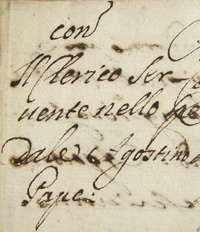 con
Il Clerico Ser-
uente nello spe
dale: Agostino
Pape: